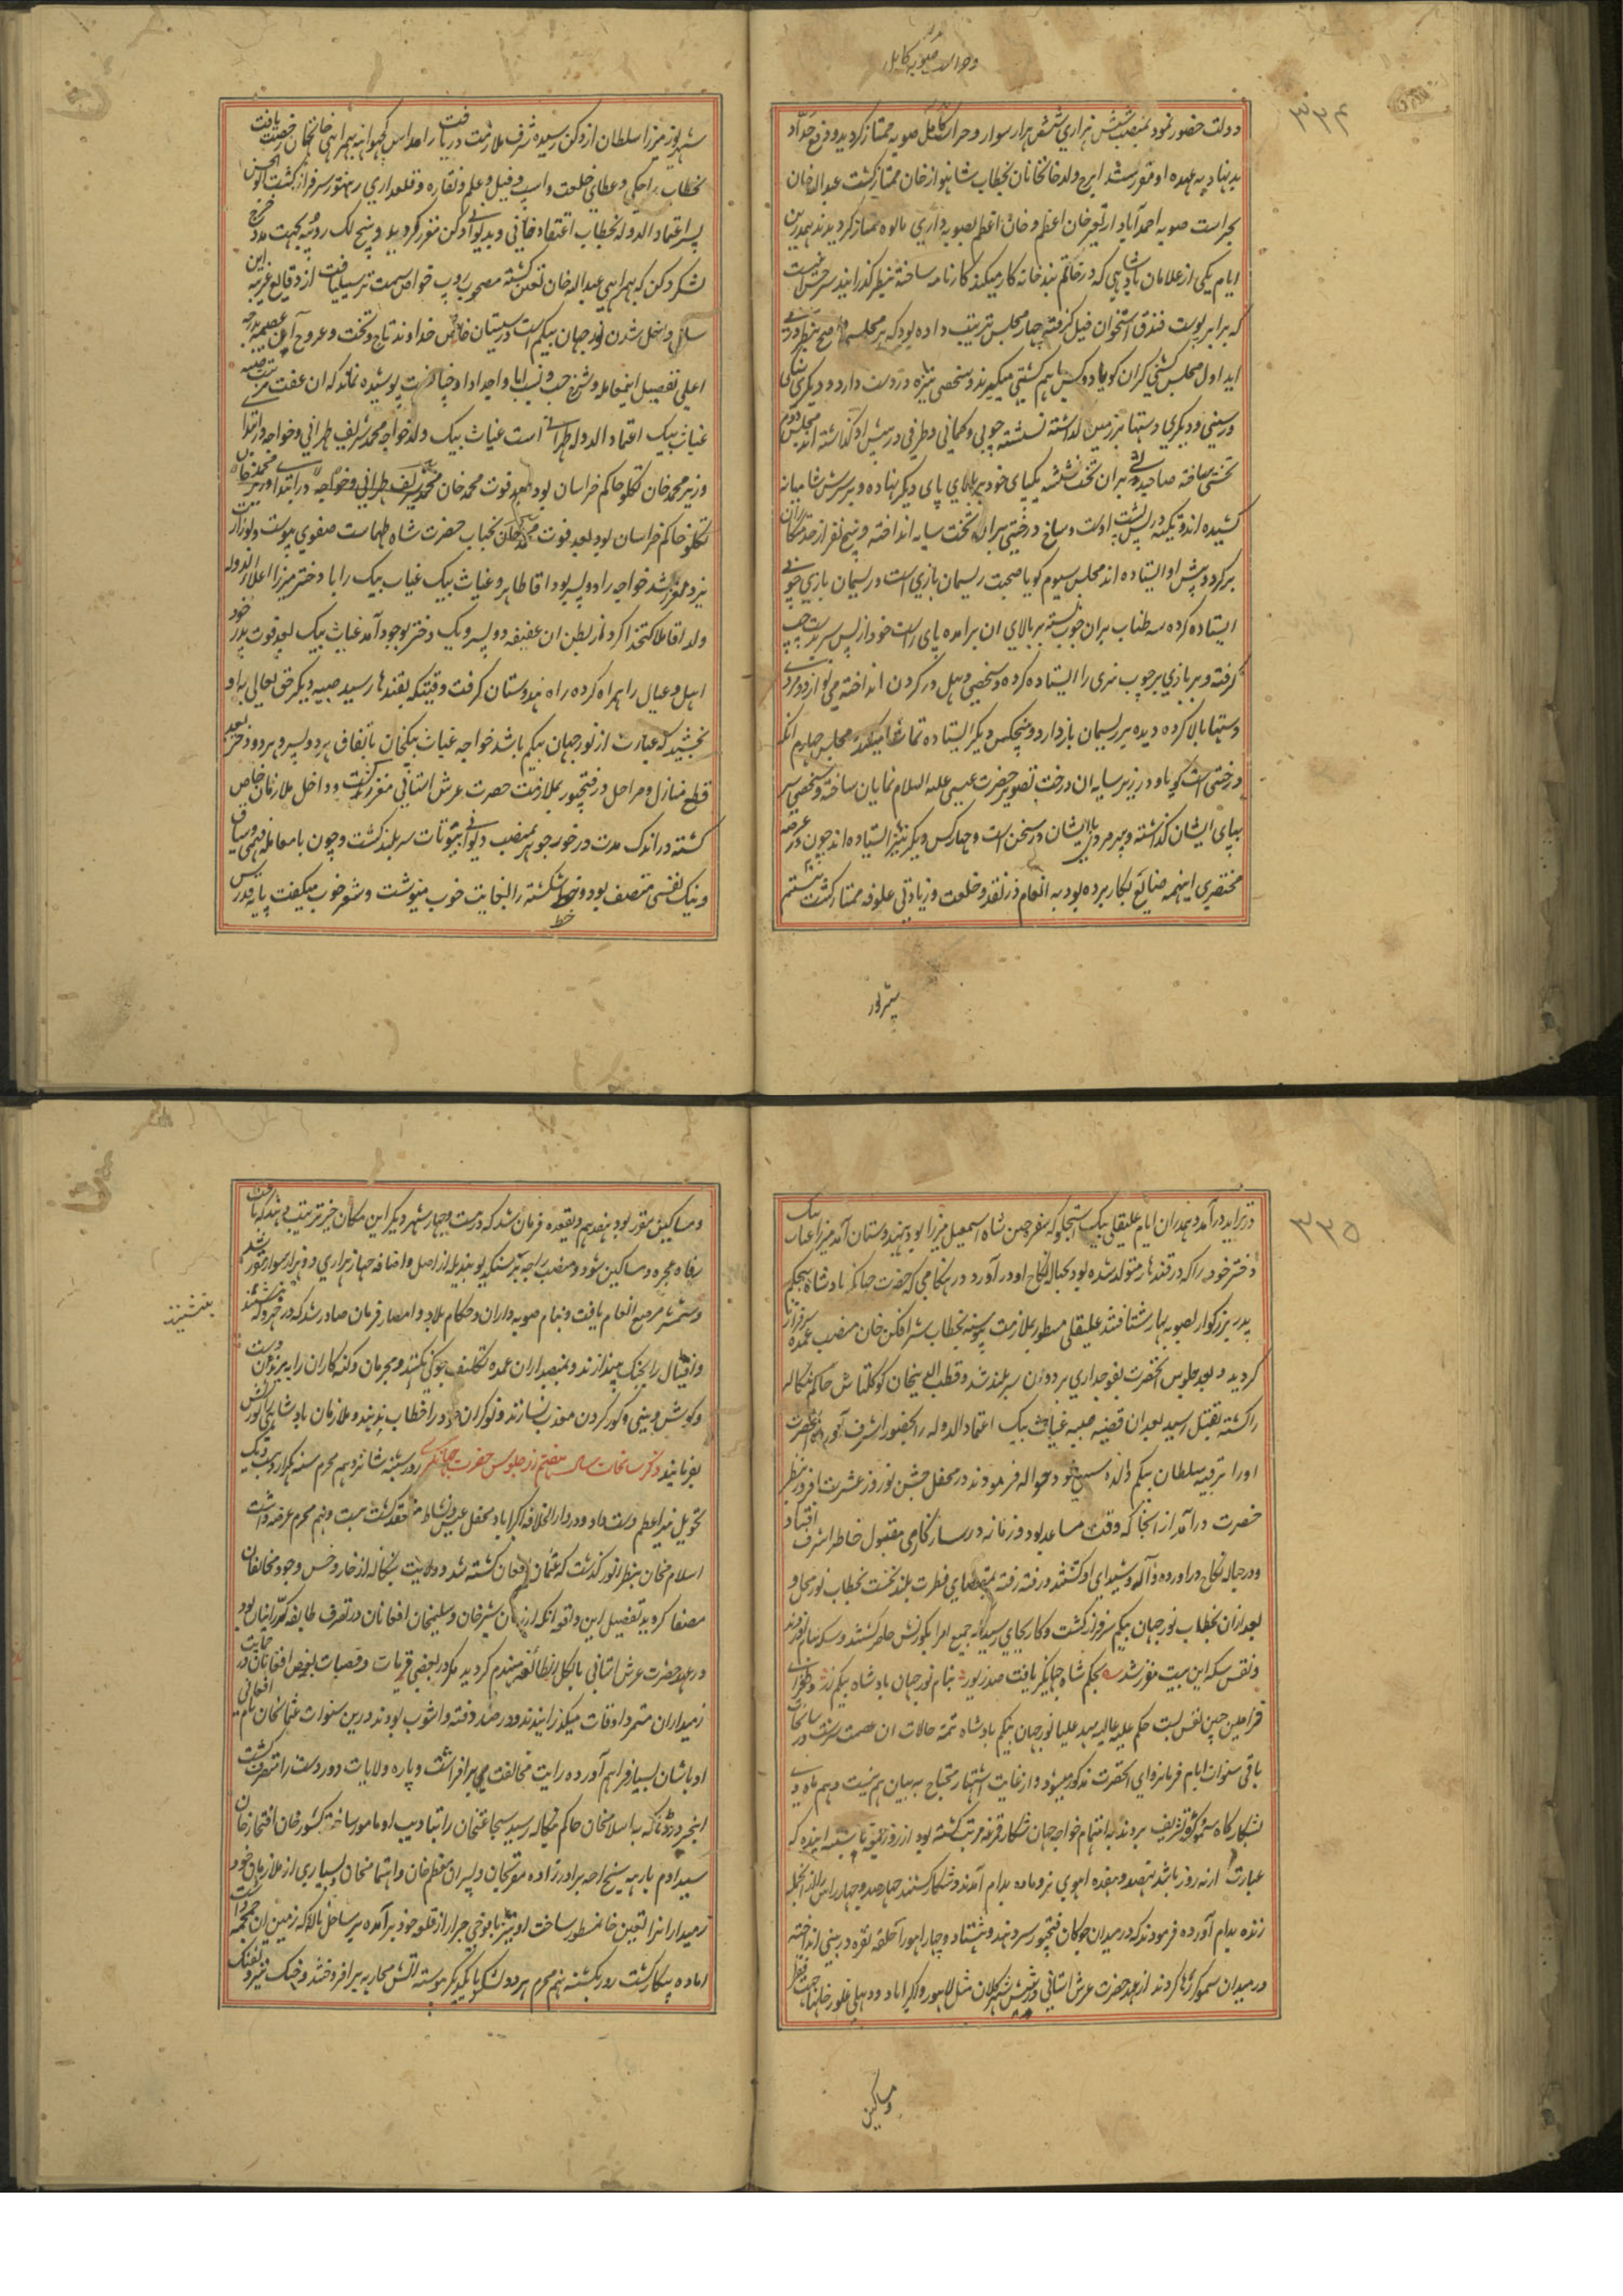 وحراست صوبه کابل
۳۳۴
دولت حضور نمود بمنصب شش هزاری شش هزار سوار و حراست کابل صوبه ممتاز کردید و رفع
بد نهاد به عهده او مقرر شد ایرج ولد خانخانان بخطاب شاهنواز خان ممتاز کشت عبدالله خان
بحراست صوبه احمد آباد از تغیر خان اعظم و خان اعظم بصوبه داری مالوه ممتاز کردیدند بهمدرین
ایام یکی از غلامان پادشاهی که در خاتم بند خانه کار میکند کارنامه ساخته بنظر گذرانید
که برابر پوست فندق استخوان فیل گرفته چهار مجلس ترتیب داده بود که بر مجلس
اید اول مجلس کشتی گیران گویا دو کس با هم کشتی میگیرند و شخصی نیزه در دست دارد و دیگری سنگی
و دیگری دستها بر زمین گذاشته نشسته چوبی و کمانی و ظرفی در پیش او گذاشته اند مجلس دوم
تختی ساخته صاحب دولتی بر آن تخت نشسته یکپای خود بر بالای پای دیگر نهاده و بر سرش شامیانه
کشیده اند و تکیه در پس پشت اوست و شاخ درختی بر آن تخت سایه انداخته و پنج نفر از خدمتکاران
بر گرد و پیش او ایستاده اند مجلس سیوم گویا صحبت ریسمان بازی است و ریسمان بازی چوبی
ایستاده کرده سه طناب بر آن چوب بسته بر بالای آن برآمده پای راست خود از پس سر بدست چپ
گرفته و بر بازی بر چوب بزی را ایستاده کرده و شخصی دهل در گردن انداخته می نوازد و مردی
دستها بالا کرده دیده بر ریسمان باز دارد و پنجکس دیگر ایستاده تماشا میکنند مجلس چهارم آنکه
درختی است گویا و در زیر سایه آن درخت تصویر حضرت عیسی علیه السلام نمایان ساخته و شخصی سر
بپای ایشان گذاشته و پیر مرد با ایشان در سخن است و چهار کس دیگر نیز ایستاده اند چون در عرصه
مختصری اینهمه صنایع بکار برده بود به انعام زر نقد و خلعت و زیادتی علوفه ممتاز کشت
شهریور
شهریور میرزا سلطان از دکن رسیده شرف ملازمت دریافت رامداس کچواهه بهمراهی خانخانان رخصت یافت
بخطاب راجکی و عطای خلعت و اسپ و فیل و علم و نقاره و قلعداری رنتهنبور سرفراز کشت
پسر اعتماد الدوله بخطاب اعتقاد خانی و بدیوانی دکن مقرر کردید و پنج لک روپیه بجهت مدد خرج
لشکر دکن که بهمراهی عبدالله خان تعین کشته مصحوب روپ خواص سمت ترسیل یافت از وقایع غریبه این
سال داخل شدن نورجهان بیکم است
اعلی تفصیل اینمعامله و شرح حسب و نسب آبا و اجداد او چنانست پوشیده نماند که ان عفت
غیاث بیک اعتماد الدوله طهرانی است غیاث بیک ولد خواجه محمد شریف طهرانی و خواجه در ابتدا
وزیر محمد خان تکلو حاکم خراسان بود
تکلو حاکم خراسان بود بعد فوت محمد خان بخباب حضرت شاه طهماست صفوی پیوست
یزد مقرر شد خواجه را دو پسر بود اقا طاهر و غیاث بیک غیاب بیک را با دختر میرزا علاء الدوله
ولد اقا ملا کتخدا کرد از بطن ان عفیفه دو پسر و یک دختر بوجود آمد غیاث بیک بعد فوت پدر خود
اهل و عیال را همراه کرده راه هندوستان کرفت وقتیکه بقندهار رسید صبیه دیگر حق تعالی به او
بخشید که عبارت از نورجهان بیگم باشد خواجه غیاث بیکخان باتفاق هر دو پسر و هر دو دختر بعد
قطع منازل و مراحل در فتحپور بملازمت حضرت عرش آستانی مقرر کشت و داخل ملازمان خاص
کشته در اندک مدت در خور جوهر بمنصب دیوانی بیوتات سربلند کشت و چون با معامله فهمی و سیاق
و نیک نفسی متصف بود و خط شکسته را بنهایت خوب مینوشت و شعر خوب میکفت پایه قدرش
خط
۳۳۵
در تزاید در آمد و همدران ایام علیقلی بیک استجلو که سفرچی شاه اسمعیل میرزا بود بهندوستان آمد میرزا غیاث بیک
دختر خود را که در قندهار متولد شده بود بحباله نکاح او در آورد در هنگامی که حضرت جهانگیر بادشاه بحکم
پدر بزرکوار بصوبه بهار شتافتند علیقلی مسطور بملازمت پیوسته بخطاب شیر افکن خان منصب عمده سرفراز
کردید و بعد جلوس آنحضرت بفوجداری بردوان سربلند شد و قطب الدینخان کوکلتاش حاکم بنکاله
را کشته بقتل رسید بعد ان قضیه صبیه غیاث بیک اعتماد الدوله را بحضور اشرف آوردند آنحضرت
او را برقیه سلطان بیکم والده سببی خود حواله فرمودند در محفل جشن نوروز عشرت افروز بنظر
حضرت درآمد از آنجا که وقت مساعد بود و زمانه در سازکاری مقبول خاطر اشرف افتاد
و در حباله نکاح در آورده و آله و شیدای او کشتند و رفته رفته بمقتضای فطرت بلند نخست بخطاب نور محل و
بعد از ان بخطاب نورجهان بیکم سرفراز کشت و کار بجای رسید که جمیع امرا بکورنش حاضر کشتند و سکه بنام او زدند
و نقش سکه این بیت مقرر شد بحکم شاه جهانگیر یافت صد زیور بنام نورجهان بادشاه بیکم زر و طغرای
فرامین چنین نقش بست حکم علیه عالیه مهد علیا نورجهان بیگم بادشاه تتمه حالات ان عصمت سرشت در سانحات
باقی سنوات ایام فرمانروای آنحضرت مذکور میشود و از غایت اشتهار محتاج به بیان هم نیست دهم ماه دی
بشکارگاه سموکر تشریف بردند به اهتمام خواجه جهان شکار قرغه مرتب کشته بود از روز یکشنبه تا شنبه اینده که
عبارت از نه روز باشد نهصد و هفده اهوی نر و ماده بدام آمدند و شکار کشتند چهار صد و چهار راس از انجمله
زنده بدام آورده فرمودند که در میدان چوکان فتحپور سر دهند و هشتاد و چهار اهو را حلقه نقره در بینی انداخته
در میدان سموکر رها کردند از عهد حضرت عرش آستانی در شش شهر کلان مثل لاهور و اکبر اباد و دهلی غلور خانها جهت فقرا
و مساکین
و مساکین مقرر بود هفدهم ذیقعده فرمان شد که در بیست و چهار شهر دیگر این مکان خیر ترتیب دهند که تا باعث
رفاه عجزه و مساکین شود و منصب راجه نرسنکدیو بندیله از اصل و اضافه چهار هزاری دو هزار سوار مقرر شد
و شمشیر مرصع انعام یافت و بنام صوبه داران و حکام بلاد و امصار فرمان صادر شد که در جهروکه ننشینند
و افیال را بجنک نیندازند و بمنصبداران عمده تکلیف چوکی نکنند و مجرمان و کنه کاران را به بریدن دست
و گوش و بینی و کور کردن معذب نسازند و نوکران خود را خطاب ندهند و ملازمان بادشاهی را کورنش
بفرمایند ذکر سانحات سال هفتم از جلوس حضرت جهانگیری روز سه شنبه شانزدهم محرم سنه هزار و بیست و یک
تحویل نیر اعظم دست داد و در دار الخلافه اکبراباد محفل عیش و نشاط منعقد کشت بیست و نهم محرم عرضه داشت
اسلام خان بنظر انور گذشت که عثمان افغان کشته شد و ولایت بنکاله از خار و خس وجود مخالفان
مصفا کردید تفصیل این واقعه انکه از زمان شیر خان و سلیمخان افغانان در تصرف طایفه کررانیان بود
و در عهد حضرت عرش آستانی بالکل انطائفه منهدم کردید مکر در بعضی قریات و قصبات بعض افغانان در حمایت
زمیداران متمرد اوقات میکذرانیدند و در صدد فتنه و آشوب بودند درین سنوات عثمانخان نام افغانی
اوباشان بسیار فراهم آورده رایت مخالفت می بر افراشت و پاره ولایات دور دست را متصرف کشت
اینخبر درد‌ناک به اسلامخان حاکم بنکاله رسید شجاعتخان را بتادیب او مامور ساخته کشور خان افتخار خان
سید ادم بارهه شیخ اچه برادرزاده مقربخان و پسران معظم خان و اهتمامخان و بسیاری از ملازمان خود
زمیدار انرا تعین خان مسطور ساخت او نیز با فوجی جرار از قلعه خود برآمده بر ساحل ناله که زمین ان جمجمه داشت
اماده پیکار کشت روز یکشنبه نهم محرم هر دو لشکر با یکدیگر پیوسته اتش محاربه بر افروختند و جنک تیر و تفنک
ننشینند